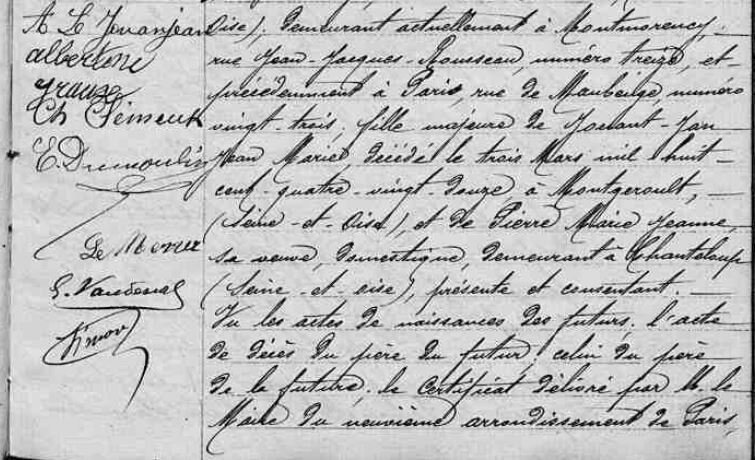 A. L. Jouanjean
albertine
Grauze
Ch Sément
E. Dumoulin
Le Menez
E. Vaudescal
Simon
Oise); demeurant actuellement à Montmorency,
rue Jean-Jacques-Rousseau, numéro treize, et
précédemment à Paris, rue de Maubeuge, numéro
vingt-trois; fille majeure de Jouant-Jan
Jean Marie, décédé le trois Mars mil huit-
cent-quatre-vingt-douze à Montgeroult,
(Seine-et-Oise), et de Pierre Marie Jeanne,
sa veuve, domestique, demeurant à Chanteloup
(Seine-et-oise), présente et consentant.
Vu les actes de naissances des futurs. l'acte
de décès du père du futur, celui du père
de la future. le certificat délivré par M. le
Maire du neuvième arrondissement de Paris,